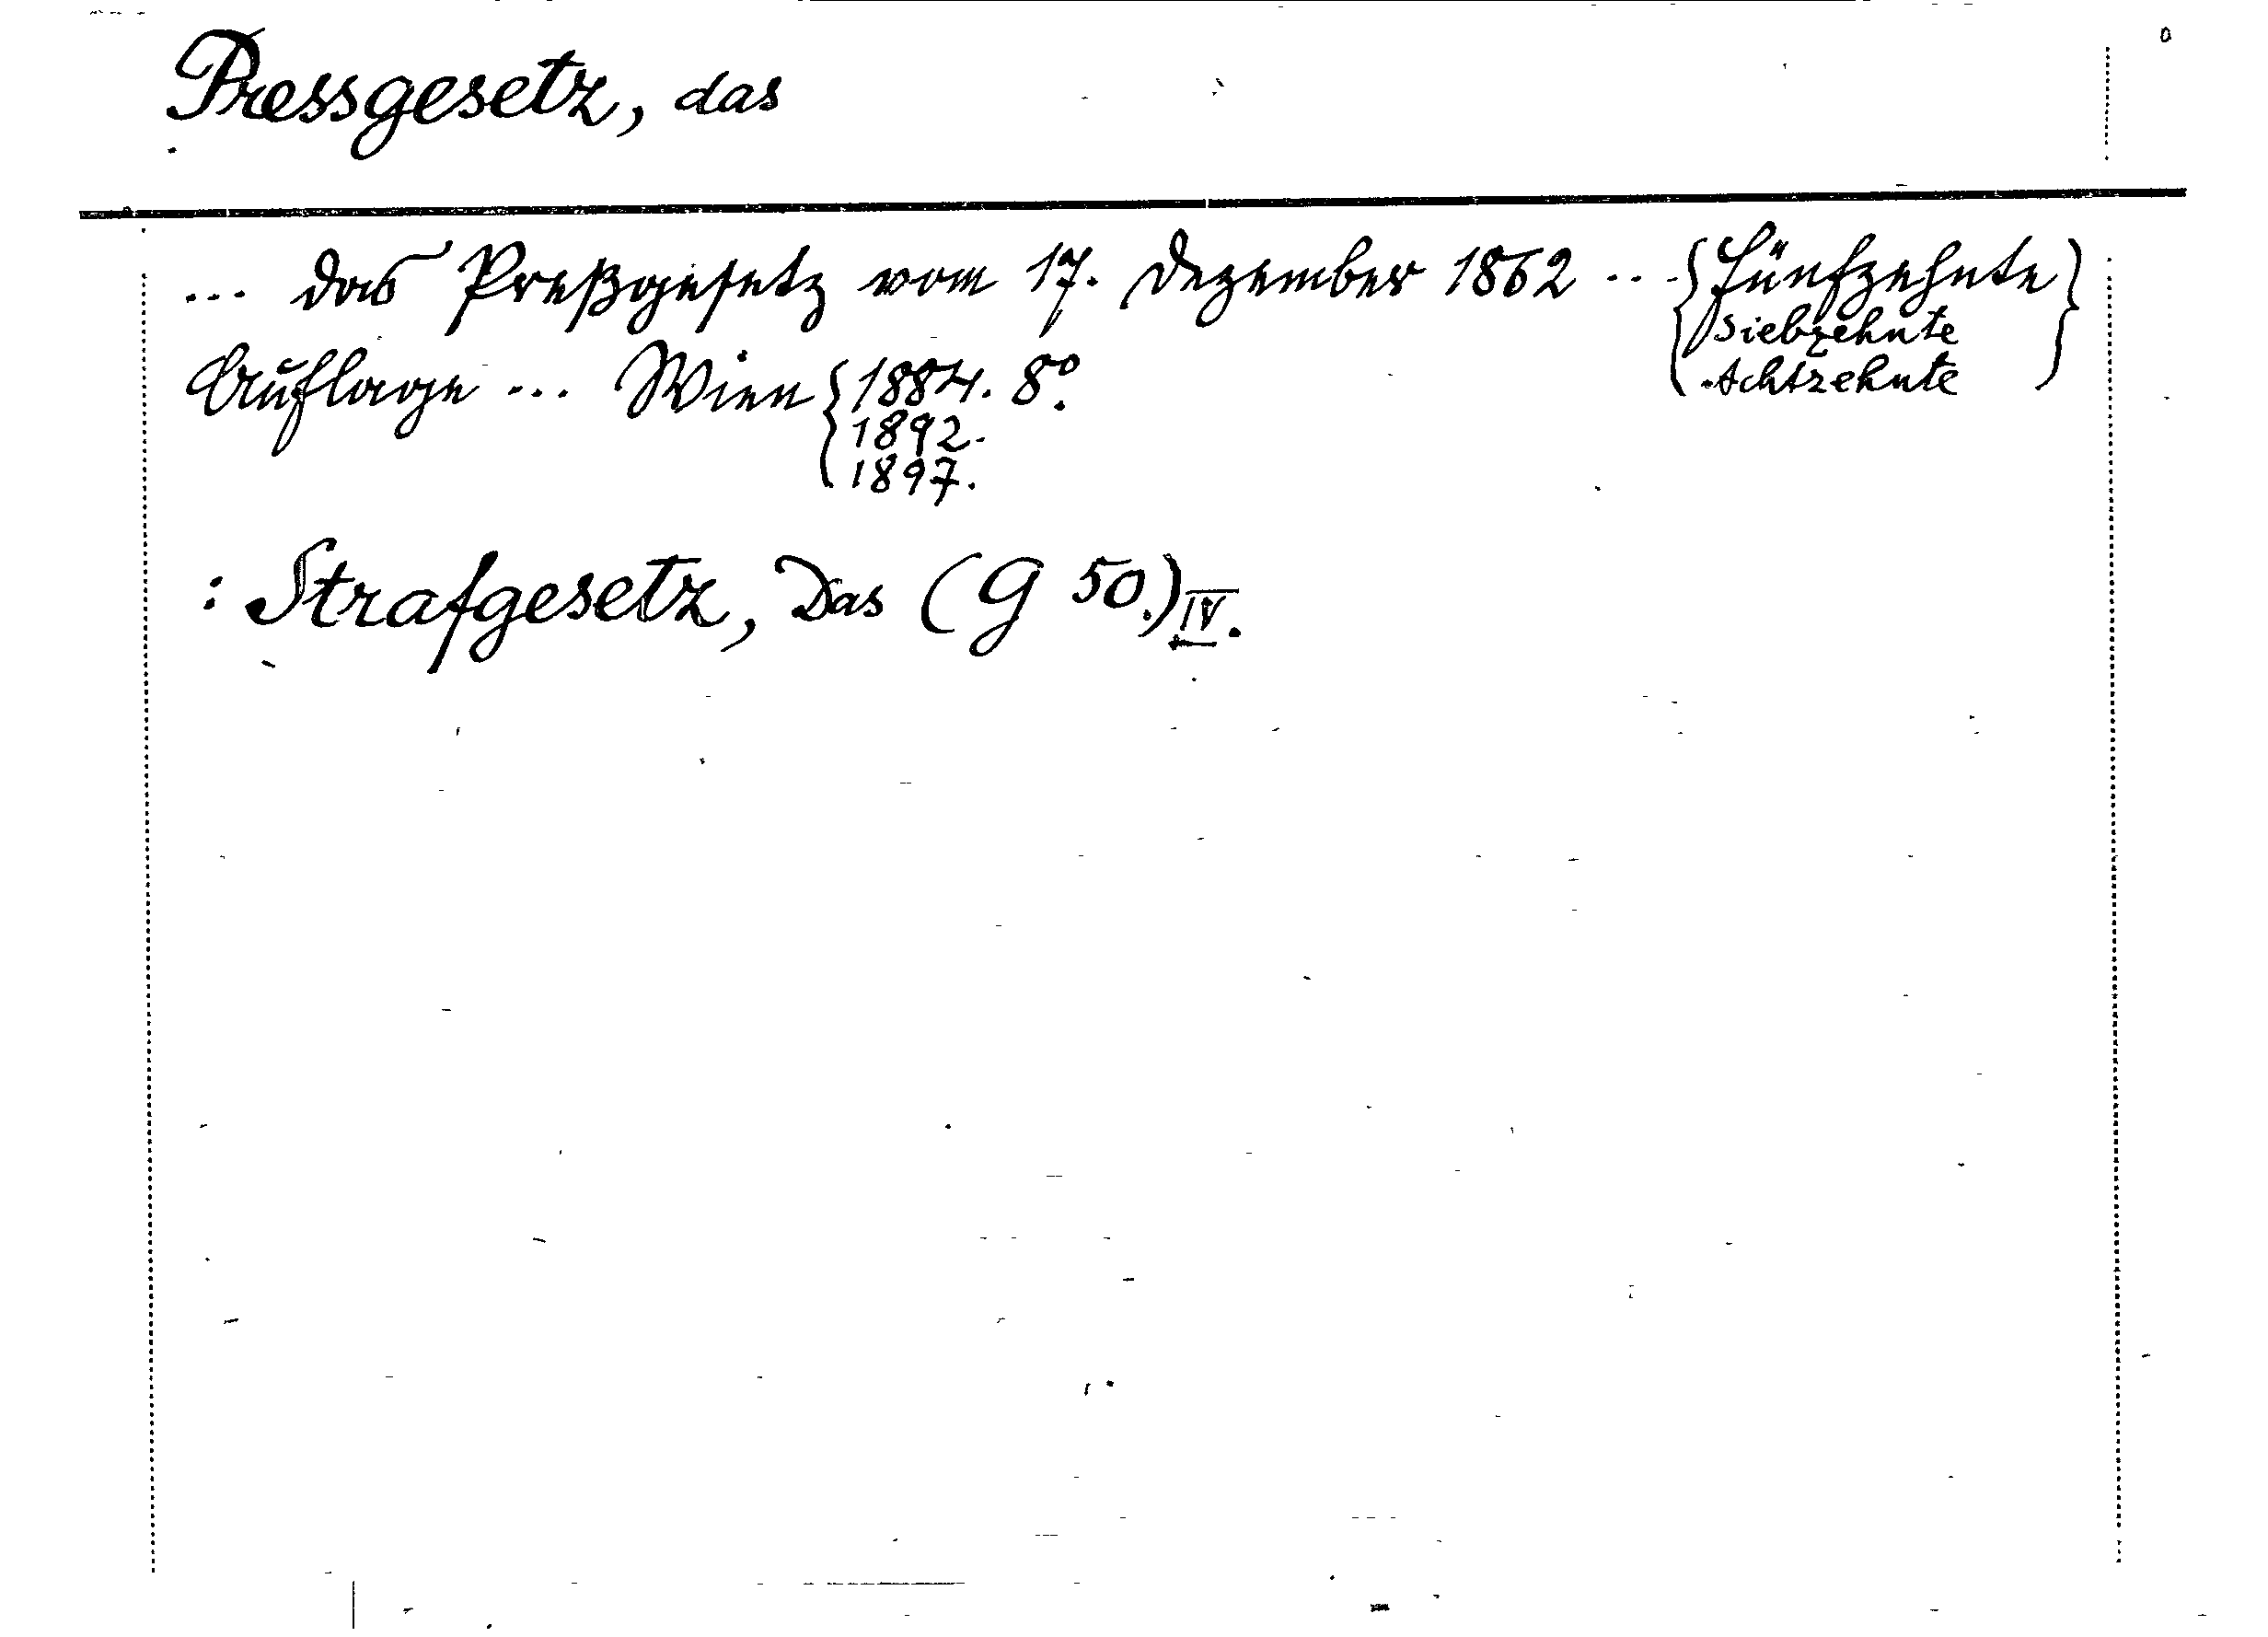 Pressgesetz, das
... das Preßgesetz vom 17. Dezember 1862 ... { Fünfzehnte }
Siebzehnte
Achtzehnte
Auflage ... Wien { 1884. 8°.
1892.
1897.
: Strafgesetz, Das (G 50.) IV.